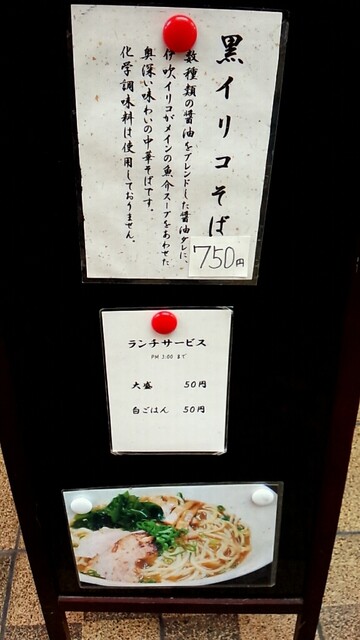 黒イリコそば
数種類の醤油をブレンドした醤油ダレに、
伊吹イリコがメインの魚介スープをあわせた
奥深い味わいの中華そばです。
化学調味料は使用しておりません。
750円
ランチサービス
PM 3:00 まで
大盛 50円
白ごはん 50円